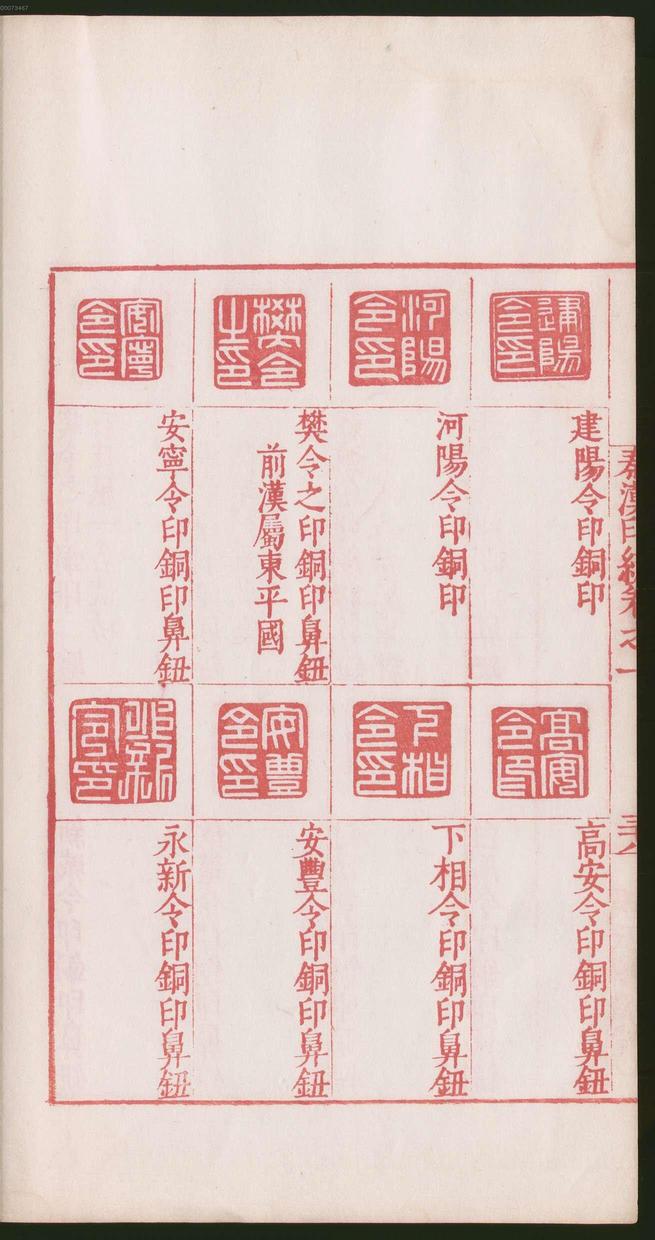 00073467
秦漢印統卷之一
三八
建陽令印
建陽令印銅印
河陽令印
河陽令印銅印
樊令之印
樊令之印銅印鼻鈕
前漢屬東平國
安寧令印
安寧令印銅印鼻鈕
高安令印
高安令印銅印鼻鈕
下相令印
下相令印銅印鼻鈕
安豐令印
安豐令印銅印鼻鈕
永新令印
永新令印銅印鼻鈕